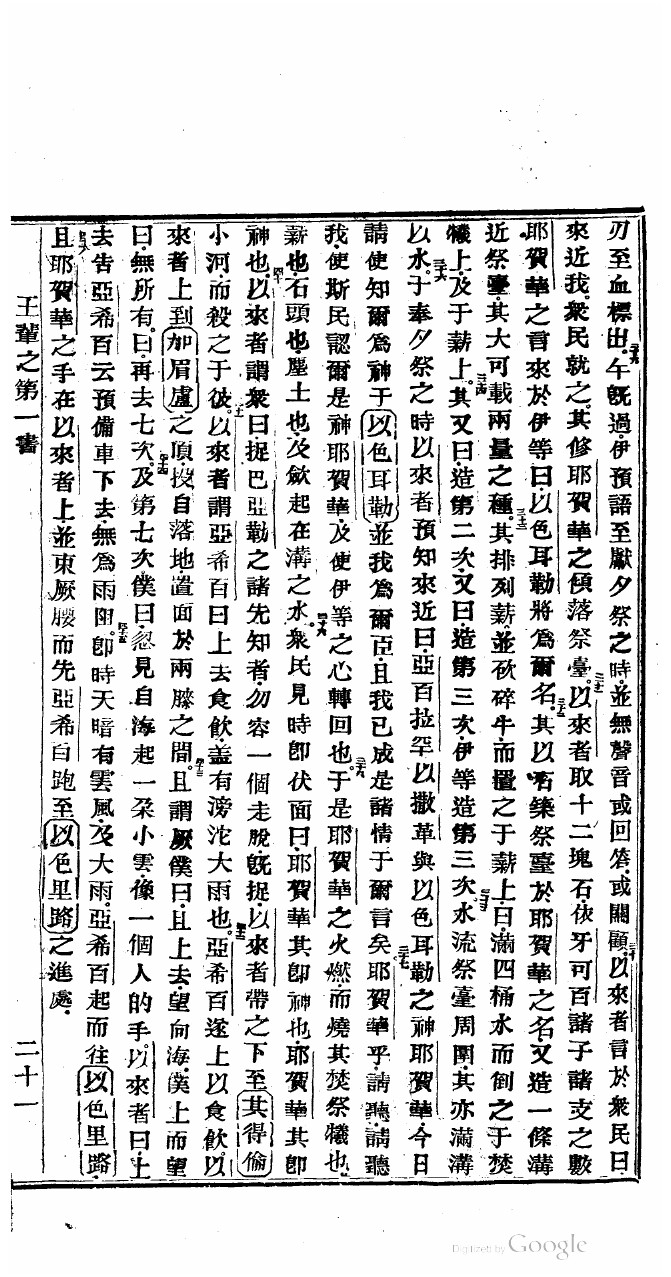 刃至血標出。午旣過。伊預語至獻夕祭之時。並無聲音或回答。或關顧。以來者言於衆民曰。
來近我。衆民就之。其修耶賀華之傾落祭臺。以來者取十二塊石。依牙可百諸子諸支之數
耶賀華之言來於伊等曰。以色耳勒將爲爾名。其以石築祭臺於耶賀華之名。又造一條溝
近祭臺。其大可載兩量之種。其排列薪。並砍碎牛。而置之于薪上。曰。滿四桶水而倒之于焚
犧上。及于薪上。其又曰。造第二次。又曰。造第三次。伊等造第三次。水流祭臺周圍。其亦滿溝
以水。于奉夕祭之時。以來者預知來近曰。亞百拉罕以撒革與以色耳勒之神耶賀華。今日
請使知爾爲神于以色耳勒。並我爲爾臣。且我已成是諸情于爾言矣。耶賀華乎。請聽。請聽
我使斯民認爾是神耶賀華。及使伊等之心轉回也。于是耶賀華之火燃而燒其焚祭犧也。
薪也。石頭也。塵土也。及歛起在溝之水。衆民見時卽伏面曰。耶賀華其卽神也。耶賀華其卽
神也。以來者謂衆曰。捉巴亞勒之諸先知者。勿容一個走脫。旣捉。以來者帶之下至其得倫
小河。而殺之于彼。以來者謂亞希百曰。上去食飲。盖有滂沱大雨也。亞希百遂上以食飲。以
來者上到加眉盧之頂。投自落地。置面於兩膝之間。且謂厥僕曰。且上去。望向海。僕上而望
曰。無所有。曰。再去七次。及第七次僕曰。忽見自海起一朵小雲。像一個人的手。以來者曰。上
去告亞希百云。預備車下去。無爲雨阻。卽時天暗有雲風。及大雨。亞希百起而往以色里路。
且耶賀華之手在以來者上。並束厥腰而先亞希百跑至以色里路之進處。
王輩之第一書
二十一
Digitized by Google